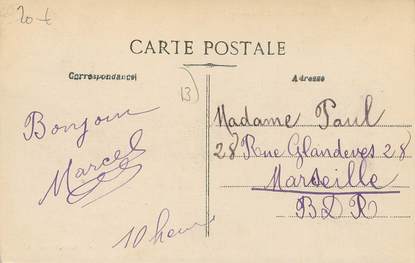 20 t
CARTE POSTALE
Correspondance
Adresse
13
Bonjour
Marcel
10 heures
Madame Paul
28 Rue Glandeves 28
Marseille
B D R